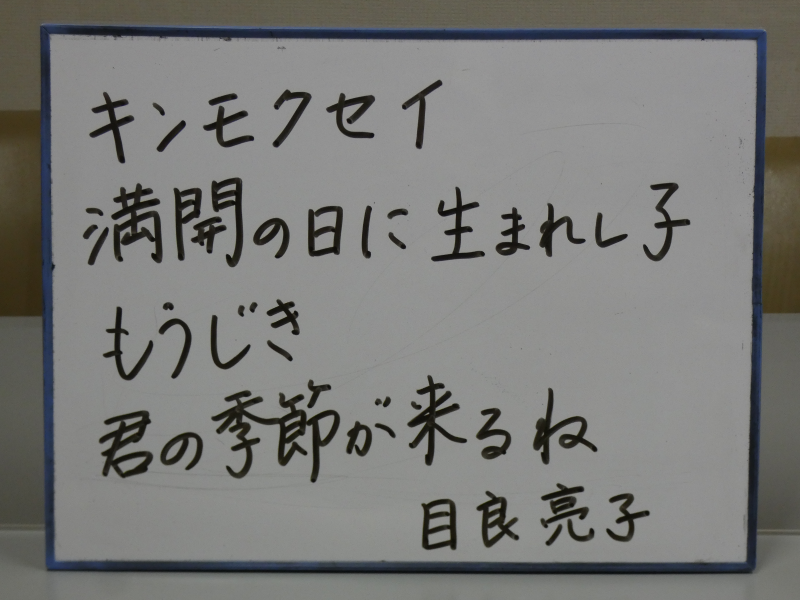 キンモクセイ
満開の日に生まれし子
もうじき
君の季節が来るね
目良亮子